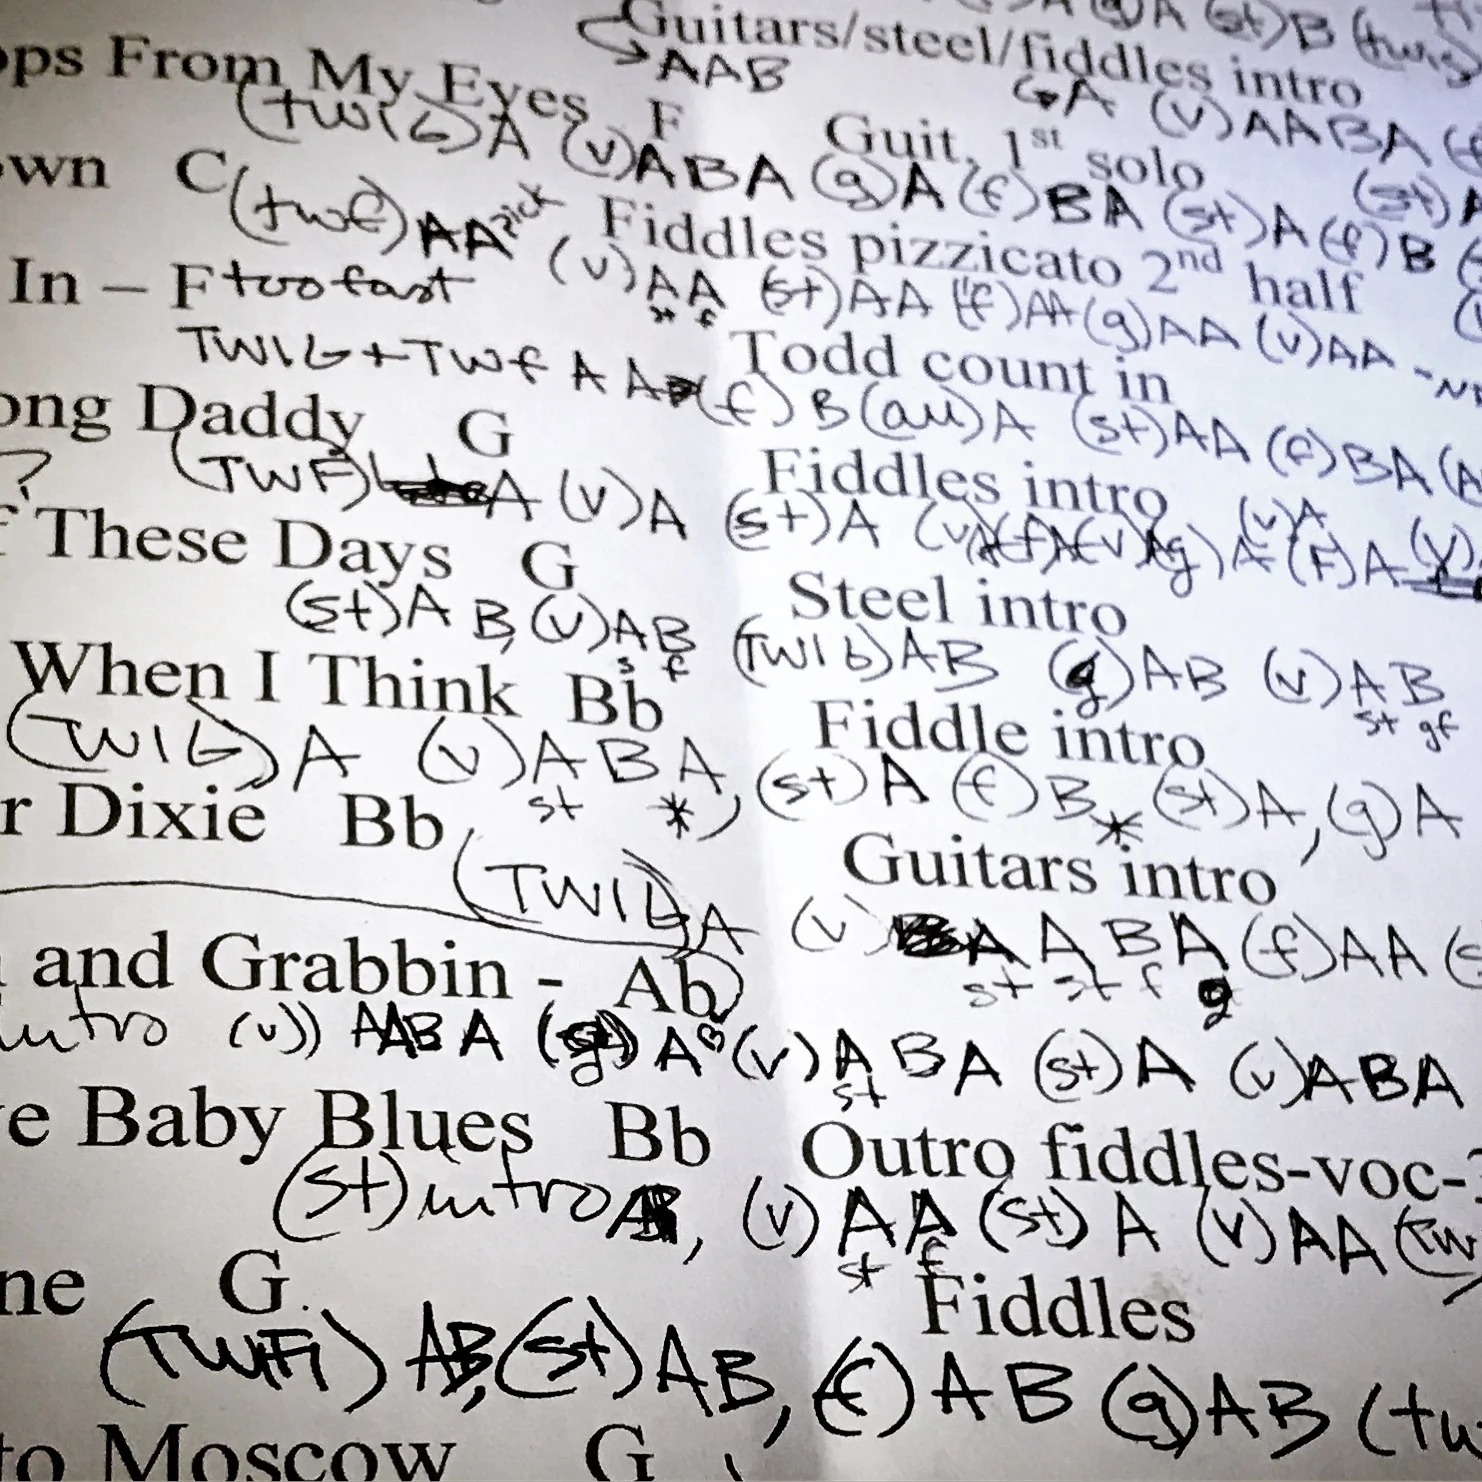 Guitars/steel/fiddles intro
AAB
ps From My Eyes F Guit. 1st solo
(twig) A (v) ABA (g) A (f) BA (st) A (f) B
own C Fiddles pizzicato 2nd half
(twf) AA pick (v) AA (st) AA (f) AA (g) AA (v) AA
st f
In – F too fast Todd count in
TWIG + TWF A A (f) B (all) A (st) AA (f) BA
ong Daddy G Fiddles intro
? (TWF) A (v) A (st) A
These Days G Steel intro
(st) A B, (v) AB (TWIG) AB (g) AB (v) AB
s f st gf
When I Think Bb Fiddle intro
(TWIG) A (v) A B A, (st) A (f) B (st) A, (g) A
st * *
r Dixie Bb Guitars intro
(TWIG) A (v) A A B A (f) AA
st st f g
and Grabbin - Ab
intro (v) AABA (g) A B (v) A B A (st) A (v) ABA
st
e Baby Blues Bb Outro fiddles-voc-?
(st) intro, (v) A A (st) A (v) AA (TW
st f
ne G Fiddles
(TWFI) AB, (st) AB, (f) AB (g) AB (tw
to Moscow G